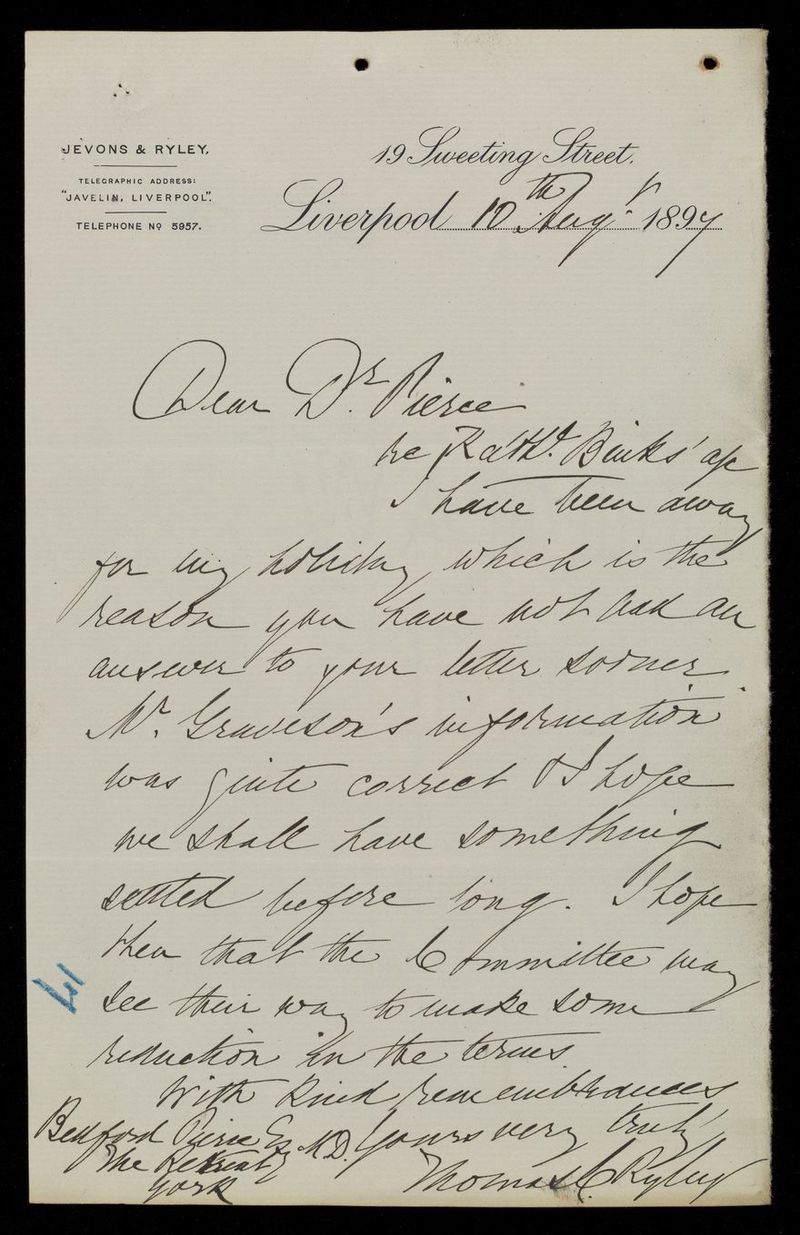 JEVONS & RYLEY,
TELEGRAPHIC ADDRESS:
"JAVELIN, LIVERPOOL".
TELEPHONE No 5957.
19 Sweeting Street.
Liverpool 10th Augt 1897
Dear Dr. Pierce
re Kathe. Binks' a/c
I have been away
for my holiday, which is the
reason you have not had an
answer to your letter sooner.
Mr. Graveson's information
was quite correct & I hope
we shall have something
settled before long. I hope
then that the Committee may
see their way to make some
reduction in the terms.
With kind remembrances
Yours very truly
Thomas C. Ryley
Bedford Pierce Esq M.D.
The Retreat
York